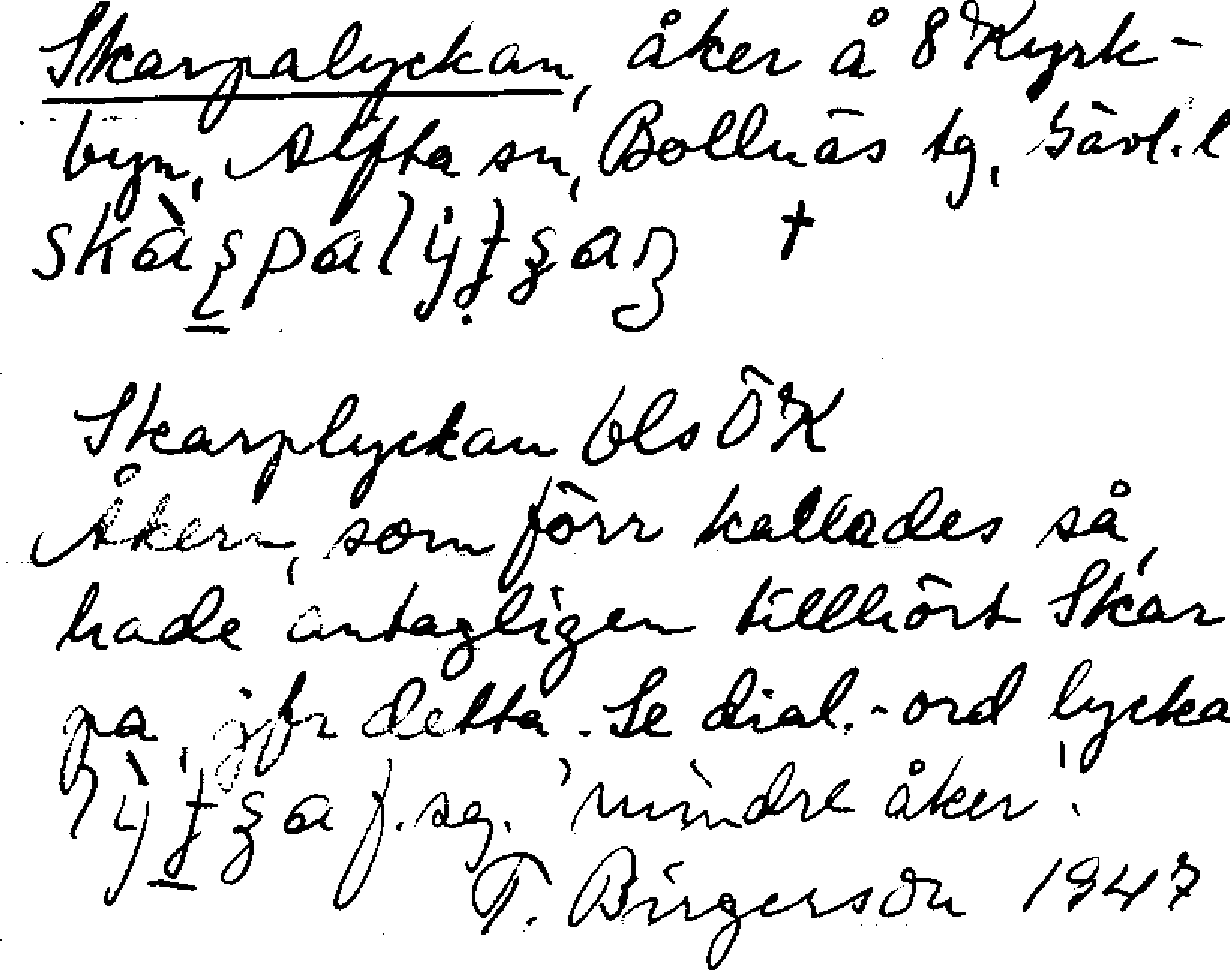 Skarpalyckan, åker å 8 Kyrk-
byn, Alfta sn, Bollnäs tg, Gävl. l
Skarplyckan bls ÖK
Åkern, som förr kallades så,
hade antagligen tillhört Skar
pa, jfr detta. Se dial.-ord lycka
f. sg. 'mindre åker'.
T. Birgerson 1947